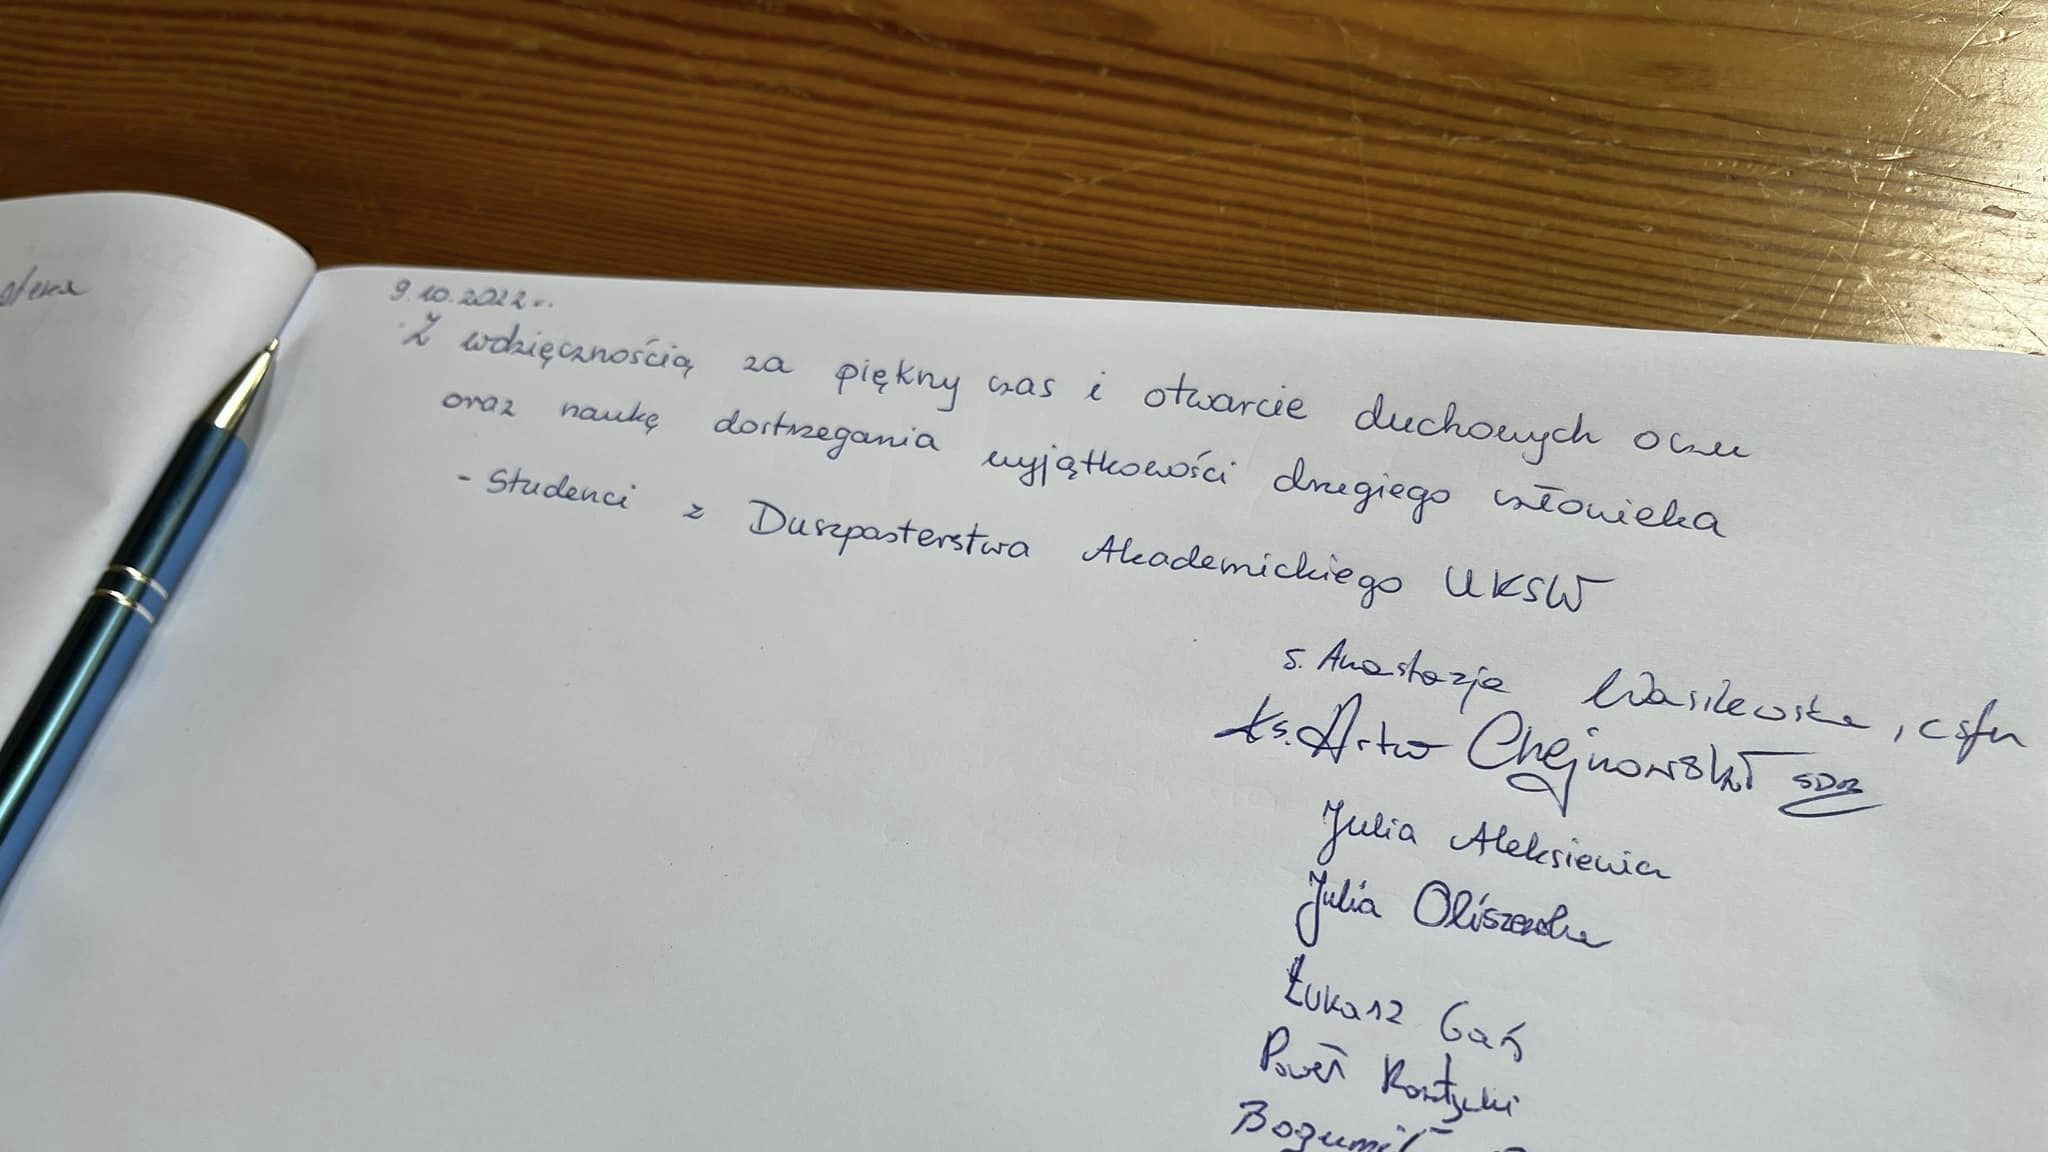 9.10.2022r.
Z wdzięcznością za piękny czas i otwarcie duchowych oczu
oraz naukę dostrzegania wyjątkowości drugiego człowieka
- Studenci z Duszpasterstwa Akademickiego UKSW
s. Anastazja Wasilewska, csfn
ks. Artur Chejnowski SDB
Julia Aleksiewicz
Julia Oliszewska
Łukasz Gaś
Paweł
Bogumił